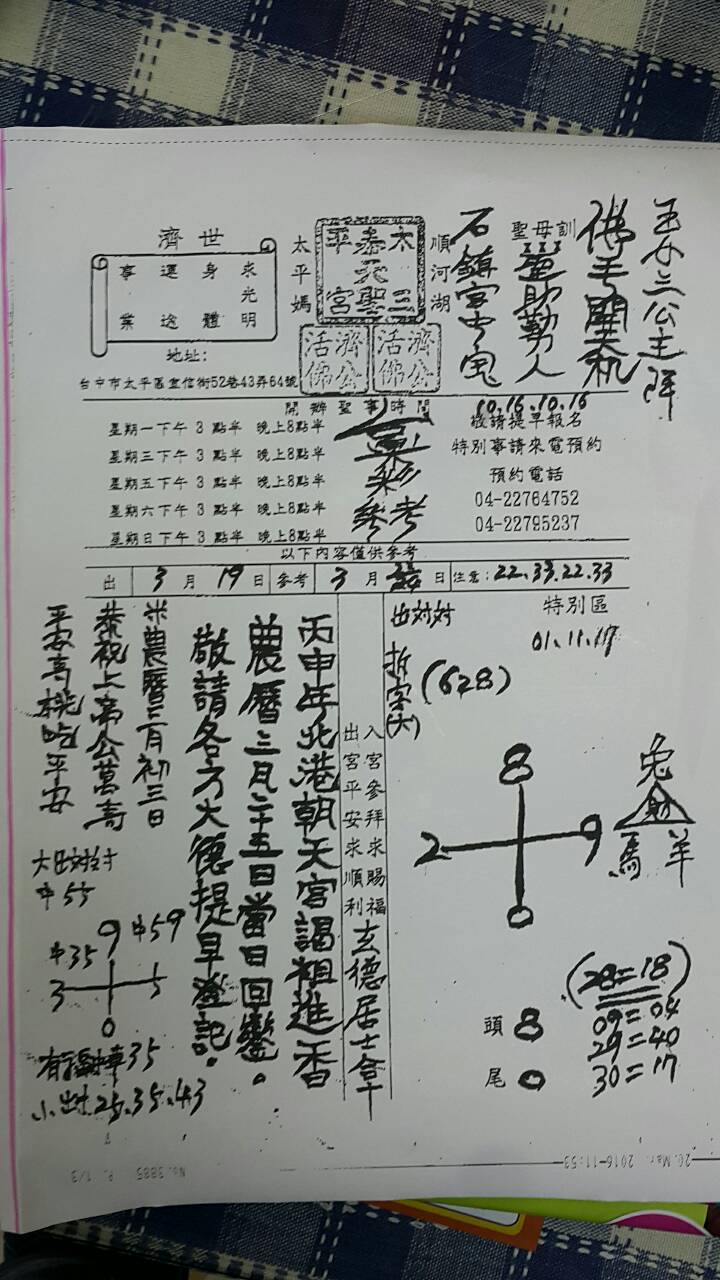 玉女三公主降
佛手開天机
聖母訓
石鎮宮中宝
順河湖
太三
泰天聖
平宮
太平媽
濟公活佛
濟公活佛
濟世
求光明
身體
運途
事業
地址:
台中市太平區宜信街52巷43弄64號
開辦聖事時間
星期一下午 3 點半 晚上8點半
星期三下午 3 點半 晚上8點半
星期五下午 3 點半 晚上8點半
星期六下午 3 點半 晚上8點半
星期日下午 3 點半 晚上8點半
參考
10.16.10.16
敬請提早報名
特別事請來電預約
預約電話
04-22764752
04-22795237
以下內容僅供參考
出 3 月 19 日 參考 3 月 日 注意: 22.33.22.33
特別區
01.11.17
出対対
拆字(大)
(628)
8
2 9
0
兔
財
馬 羊
(28=18)
09=04
29=40
30=17
頭 8
尾 0
入宮參拜求賜福
出宮平安求順利
玄德居士拿
丙申年北港朝天宮謁祖進香
農曆三月二十五日當日回鑾。
敬請各方大德提早登記。
農曆三月初三日
恭祝上帝公萬壽
平安
平安
大出対対
中55
中35 9 中59
3 5
0
35
小出対.25.35.43
20.Mar. 2016 11:53
No.3885 P. 1/3